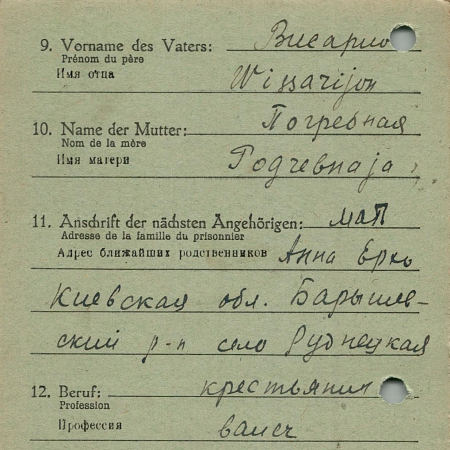 9. Vorname des Vaters: Висарио
Prénom du père
Имя отца Wissarijon
10. Name der Mutter: Погребная
Nom de la mère
Имя матери Podrebnaja
11. Anschrift der nächsten Angehörigen: мат
Adresse de la famille du prisonnier
Адрес ближайших родственников Анна
Киевская обл. Барышев-
ский р-н село Рудницкая
12. Beruf: крестьянин
Profession
Профессия